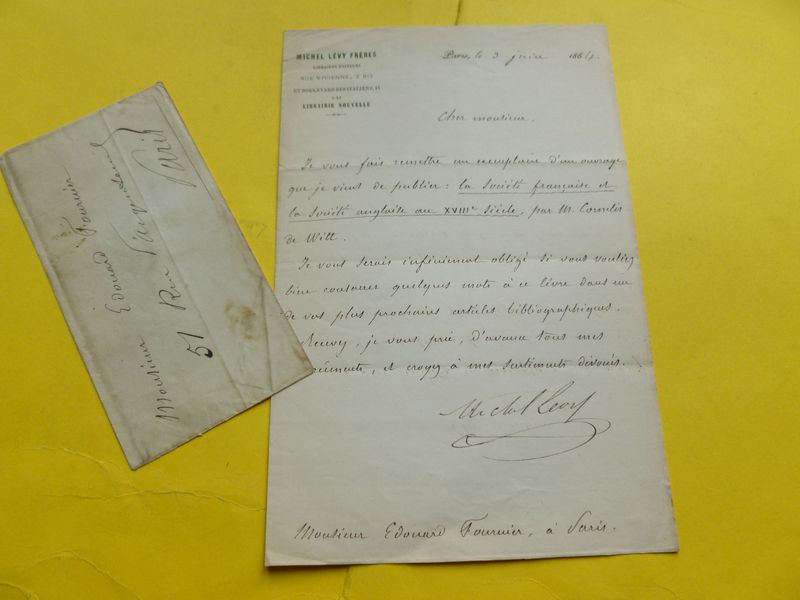 MICHEL LÉVY FRÈRES
LIBRAIRES ÉDITEURS
RUE VIVIENNE, 2 BIS
ET BOULEVARD DES ITALIENS, 15
A LA
LIBRAIRIE NOUVELLE
Paris, le 3 juin 1864.
Cher monsieur,
Je vous fais remettre un exemplaire d'un ouvrage
que je viens de publier: la Société française et
la Société anglaise au XVIIIe Siècle, par M. Cornelis
de Witt.
Je vous serais infiniment obligé si vous vouliez
bien consacrer quelques mots à ce livre dans un
de vos plus prochains articles bibliographiques.
Recevez, je vous prie, d'avance tous mes
et croyez à mes sentiments dévoués.
Michel Lévy
Monsieur Edouard Fournier, à Paris.
Monsieur Edouard Fournier
51 Rue
Paris